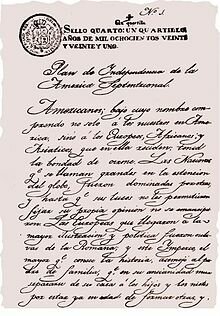 SELLO QUARTO: UN QUARTILLO
AÑOS DE MIL OCHOCIENTOS VEINTE
Y VEINTE Y UNO.
Plan de Independencia de la
America Septentrional.
Americanos; bajo cuyo nombre com-
prendo no solo a los nacidos en Ame-
rica, sino a los Europeos, Africanos, y
Asiaticos, que en ella residen: tened
la bondad de oirme. Las Naciones
qe se llaman grandes en la estencion
del globo, fueron dominadas por otras
y hasta qe sus luces no les permitieron
fijar su propia opinion no se emanci-
paron. Los Europeos que llegaron a la
mayor ilustracion y politica fueron escla-
vos de la Romana, y este Imperio el
mayor qe conoce la historia, asemejó al pa-
dre de familias, qe en su ancianidad mira
separarse de su casa a los hijos y los nietos
por estar ya en edad de formar otras y